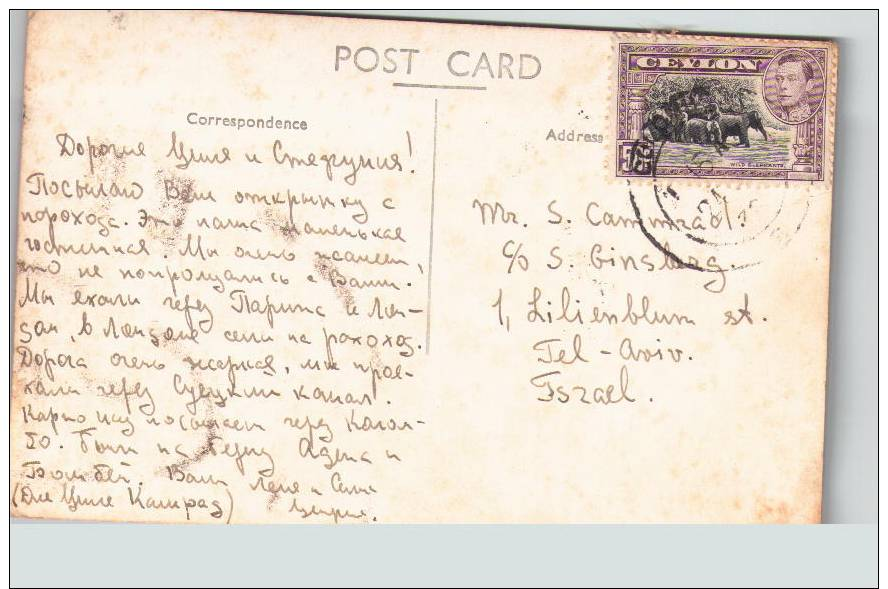 POST CARD
Correspondence
Address
CEYLON
WILD ELEPHANTS
Дорогие Циля и
Посылаю Вам открытку с
парохода. Это наша маленькая
гостинная. Мы очень жалеем,
что не попрощались с Вами.
Мы ехали через Париж и Лон-
дон, в Лондоне сели на пароход.
Дорога очень жаркая, мы прое-
хали через Суецкий канал.
через Колом-
бо. Были на берегу Адена и
Бомбей. Ваши Леня и
(Для Цили Камрад)
Mr. S. Cammrad.
c/o S. Ginsberg.
1, Lilienblum st.
Tel-Aviv.
Iszael.